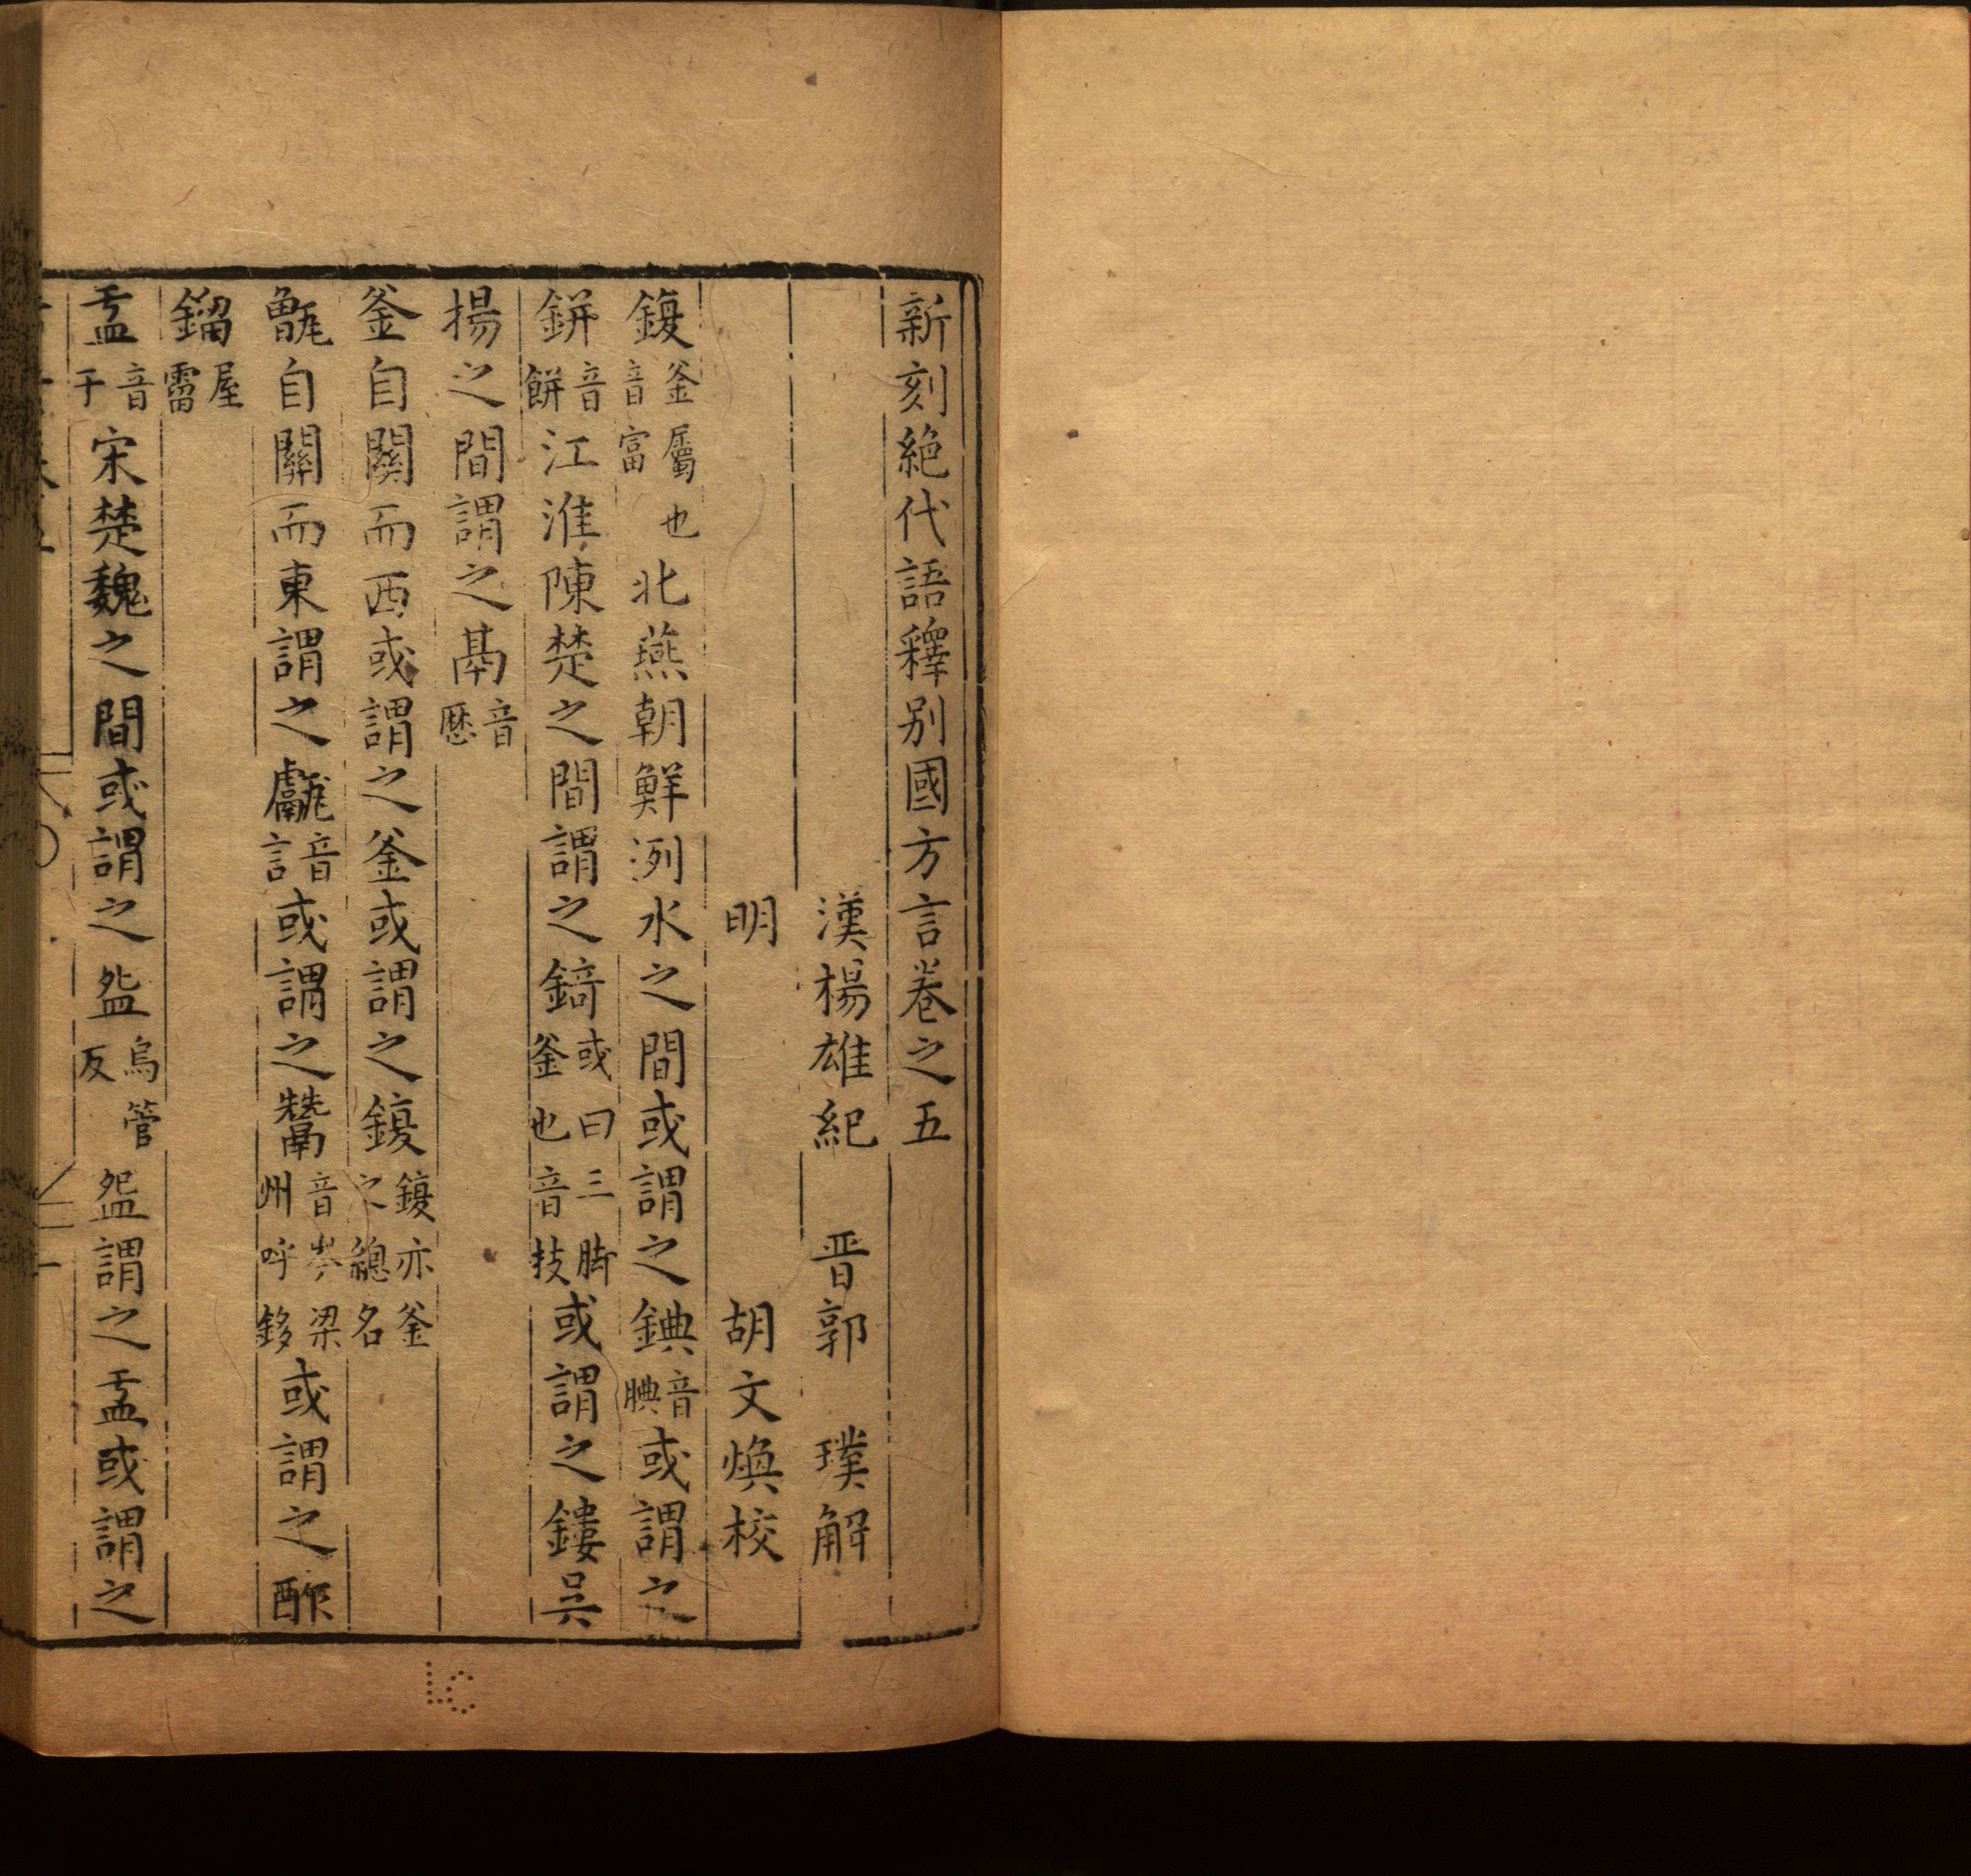 新刻絶代語釋别國方言卷之五
漢楊雄紀 晋郭 璞解
明 胡文煥校
鍑釜屬也音富北燕朝鮮洌水之間或謂之錪音腆或謂之
鉼音餅江淮陳楚之間謂之錡或曰三脚釜也音技或謂之鏤吳
揚之間謂之鬲音歷
釜自關而西或謂之釜或謂之鍑鍑亦釜之總名
甑自關而東謂之甗音言或謂之鬵音岑梁州呼鉹或謂之酢
鎦屋霤
盂音于宋楚魏之間或謂之㿿烏管反㿿謂之盂或謂之